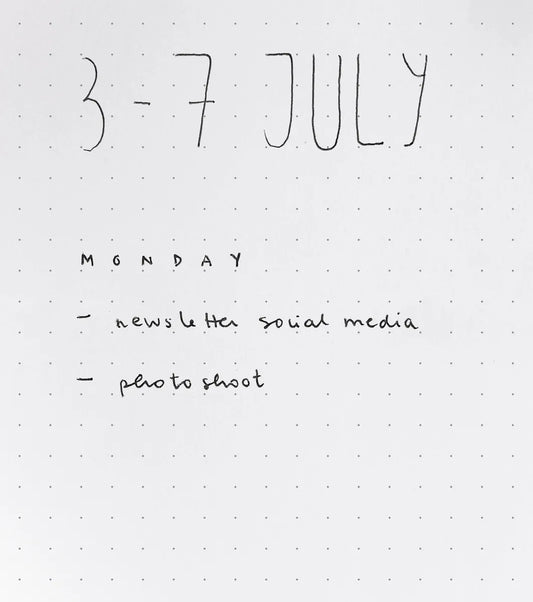 3 - 7 JULY
MONDAY
- newsletter social media
- photo shoot